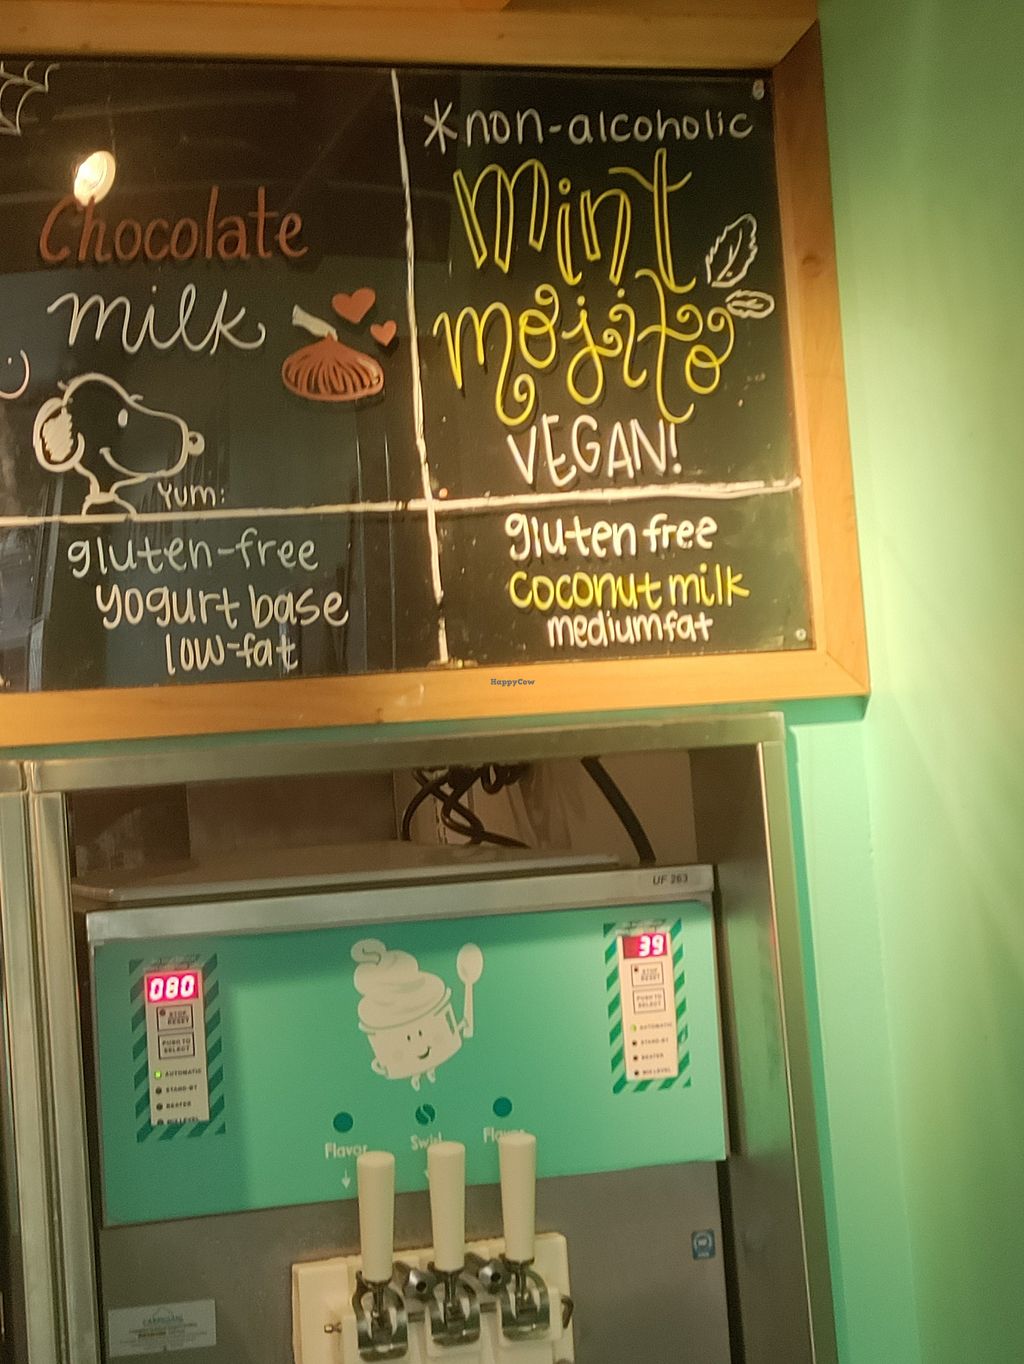 Chocolate
milk
Yum:
gluten-free
yogurt base
low-fat
*non-alcoholic
mint
mojito
VEGAN!
gluten free
coconut milk
medium fat
HappyCow
UF 263
080
STOP
RESET
PUSH TO
SELECT
AUTOMATIC
STAND-BY
BEATER
MIX LEVEL
39
STOP
RESET
PUSH TO
SELECT
AUTOMATIC
STAND-BY
BEATER
MIX LEVEL
Flavor
Swirl
Flavor